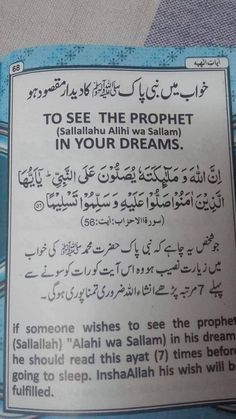 آیاتِ الٰہیہ
68
خواب میں نبی پاک ﷺ کا دیدار مقصود ہو
TO SEE THE PROPHET
(Sallallahu Alihi wa Sallam)
IN YOUR DREAMS.
اِنَّ اللّٰهَ وَمَلٰٓئِكَتَهٗ يُصَلُّوْنَ عَلَى النَّبِيِّ ؕ يٰۤاَيُّهَا
الَّذِيْنَ اٰمَنُوْا صَلُّوْا عَلَيْهِ وَسَلِّمُوْا تَسْلِيْمًا ﴿۵۶﴾
(سورۃ الاحزاب، آیت:56)
جو شخص یہ چاہے کہ نبی پاک حضرت محمد ﷺ کی خواب
میں زیارت نصیب ہو وہ اس آیت کو رات کو سونے سے
پہلے 7 مرتبہ پڑھے انشاءاللہ ضروری تمنا پوری ہوگی۔
if someone wishes to see the prophet
(Sallallah) "Alahi wa Sallam) in his dream
he should read this ayat (7) times before
going to sleep. InshaAllah his wish will be
fulfilled.